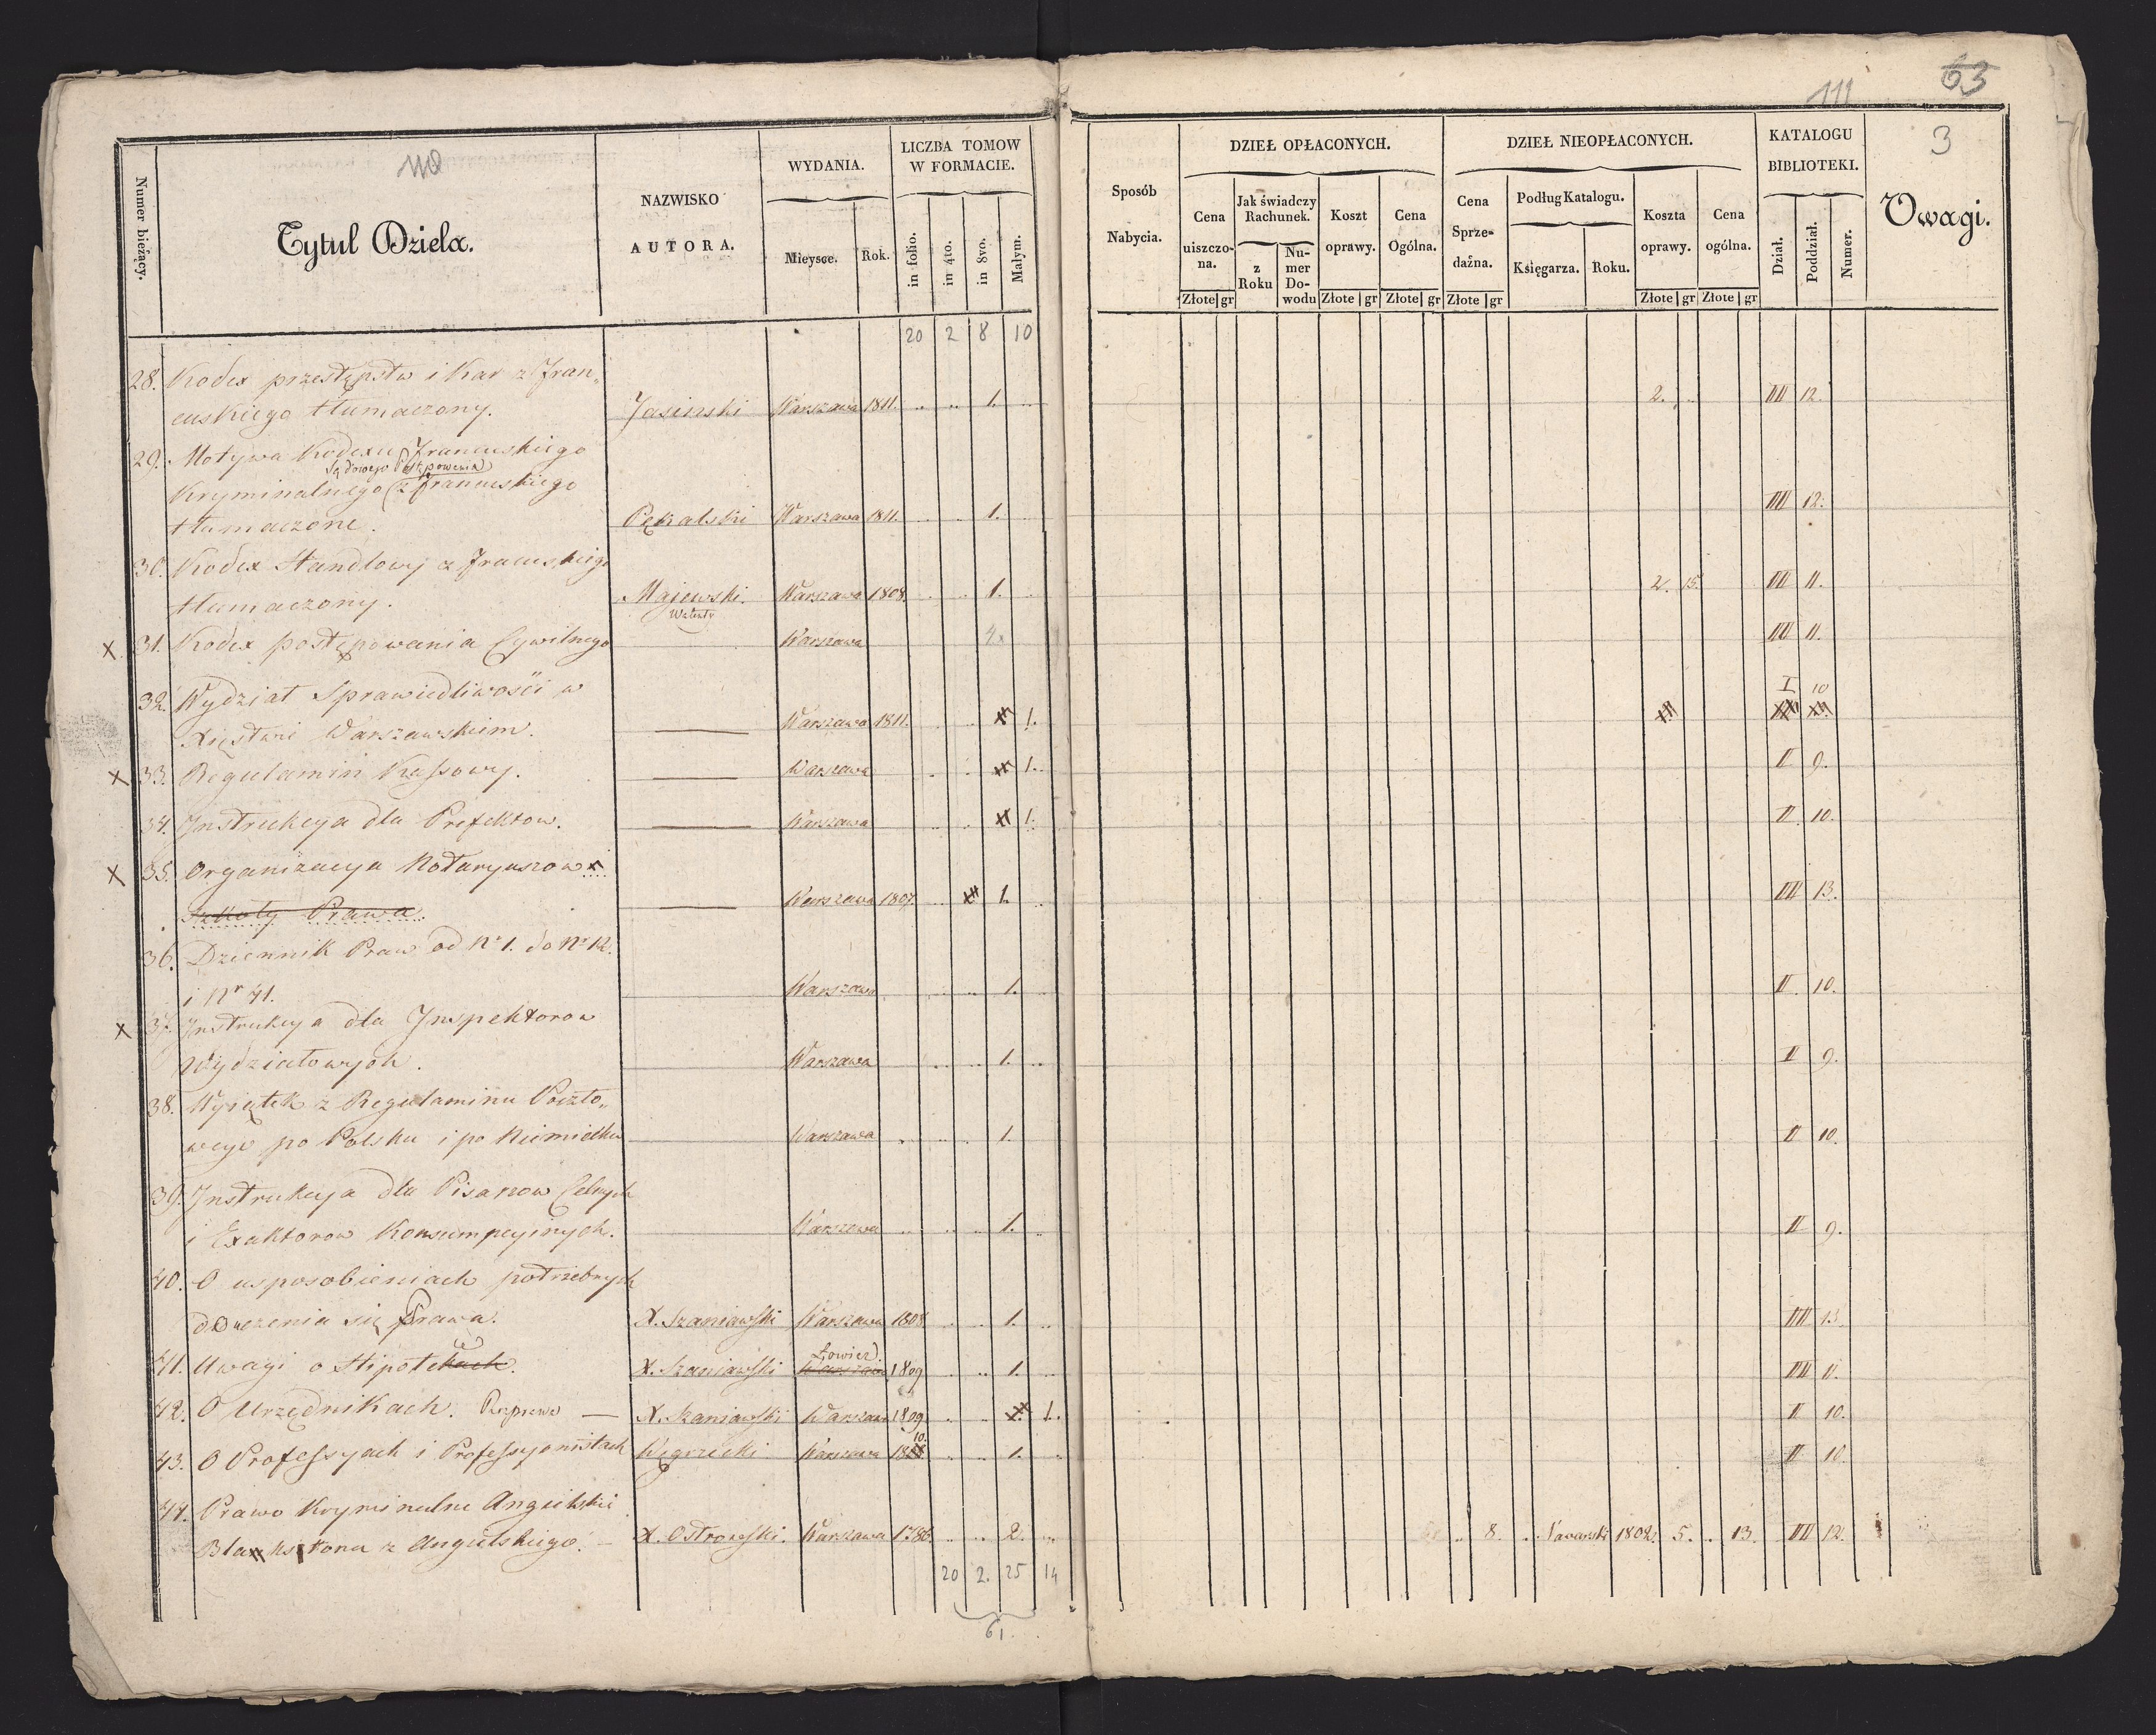 110
111
63
3
Numer bieżący.
Tytuł Dzieła.
NAZWISKO
AUTORA.
WYDANIA.
Mieysce.
Rok.
LICZBA TOMOW
W FORMACIE.
in folio.
in 4to.
in 8vo.
Małym.
Sposób
Nabycia.
DZIEŁ OPŁACONYCH.
Cena
uiszczo-
na.
Złote gr
Jak świadczy
Rachunek.
z
Roku
Nu-
mer
Do-
wodu
Koszt
oprawy.
Złote gr
Cena
Ogólna.
Złote gr
DZIEŁ NIEOPŁACONYCH.
Cena
Sprze-
daźna.
Złote gr
Podług Katalogu.
Księgarza.
Roku.
Koszta
oprawy.
Złote gr
Cena
ogólna.
Złote gr
KATALOGU
BIBLIOTEKI.
Dział.
Poddział.
Numer.
Uwagi.
20 2 8 10
28. Kodex przestępstw i Kar z Fran„
cuskiego tłumaczony. Jasinski Warszawa 1811. 1. 2. IIII 12.
29. Motywa Kodexu Francuskiego
Sądowego Postępowania
Kryminalnego z francuskiego
tłumaczone. Pękalski Warszawa 1811. 1. IIII 12.
30. Kodex Handlowy z francuskiego
tłumaczony. Majewski Warszawa 1808. 1. 2. 15. IIII 11.
Walenty
x 31. Kodex postępowania Cywilnego Warszawa IIII 11.
32. Wydział Sprawiedliwości w
I 10
Xięstwie Warszawskim. Warszawa 1811. 1.
x 33. Regulamin Kassowy. Warszawa 1. II 9.
34. Instrukcya dla Prefektow. Warszawa 1. II 10.
x 35. Organizacya Notaryuszow i
Szkoły Prawa. Warszawa 1807. 1. IIII 13.
36. Dziennik Praw od Nr 1. do Nr 12.
i Nr 41. Warszawa 1. II 10.
x 37. Instrukcya dla Inspektorow
Wydziałowych. Warszawa 1. II 9.
38. Wyiątek z Regulaminu Poczto„
wego po Polsku i po Niemiecku Warszawa 1. II 10.
39. Instrukcya dla Pisarzow Celnych
i Exaktorow Konsumpcyinych. Warszawa 1. II 9.
40. O usposobieniach potrzebnych
do uczenia się Prawa. X. Szaniawski Warszawa 1808 1. IIII 13.
41. Uwagi o Hipotekach. X. Szaniawski Łowicz Warszawa 1809 1. IIII 11.
42. O Urzędnikach. Rozprawa — X. Szaniawski Warszawa 1809 1. II 10.
43. O Professyach i Professyonistach Węgrzecki Warszawa 1810. 1. II 10.
44. Prawo Kryminalne Angielskie
Blaksztona z Angielskiego. X. Ostrowski. Warszawa 1786. 2. 8. 1802. 5. 13. IIII 12.
20 2. 25 14
61.